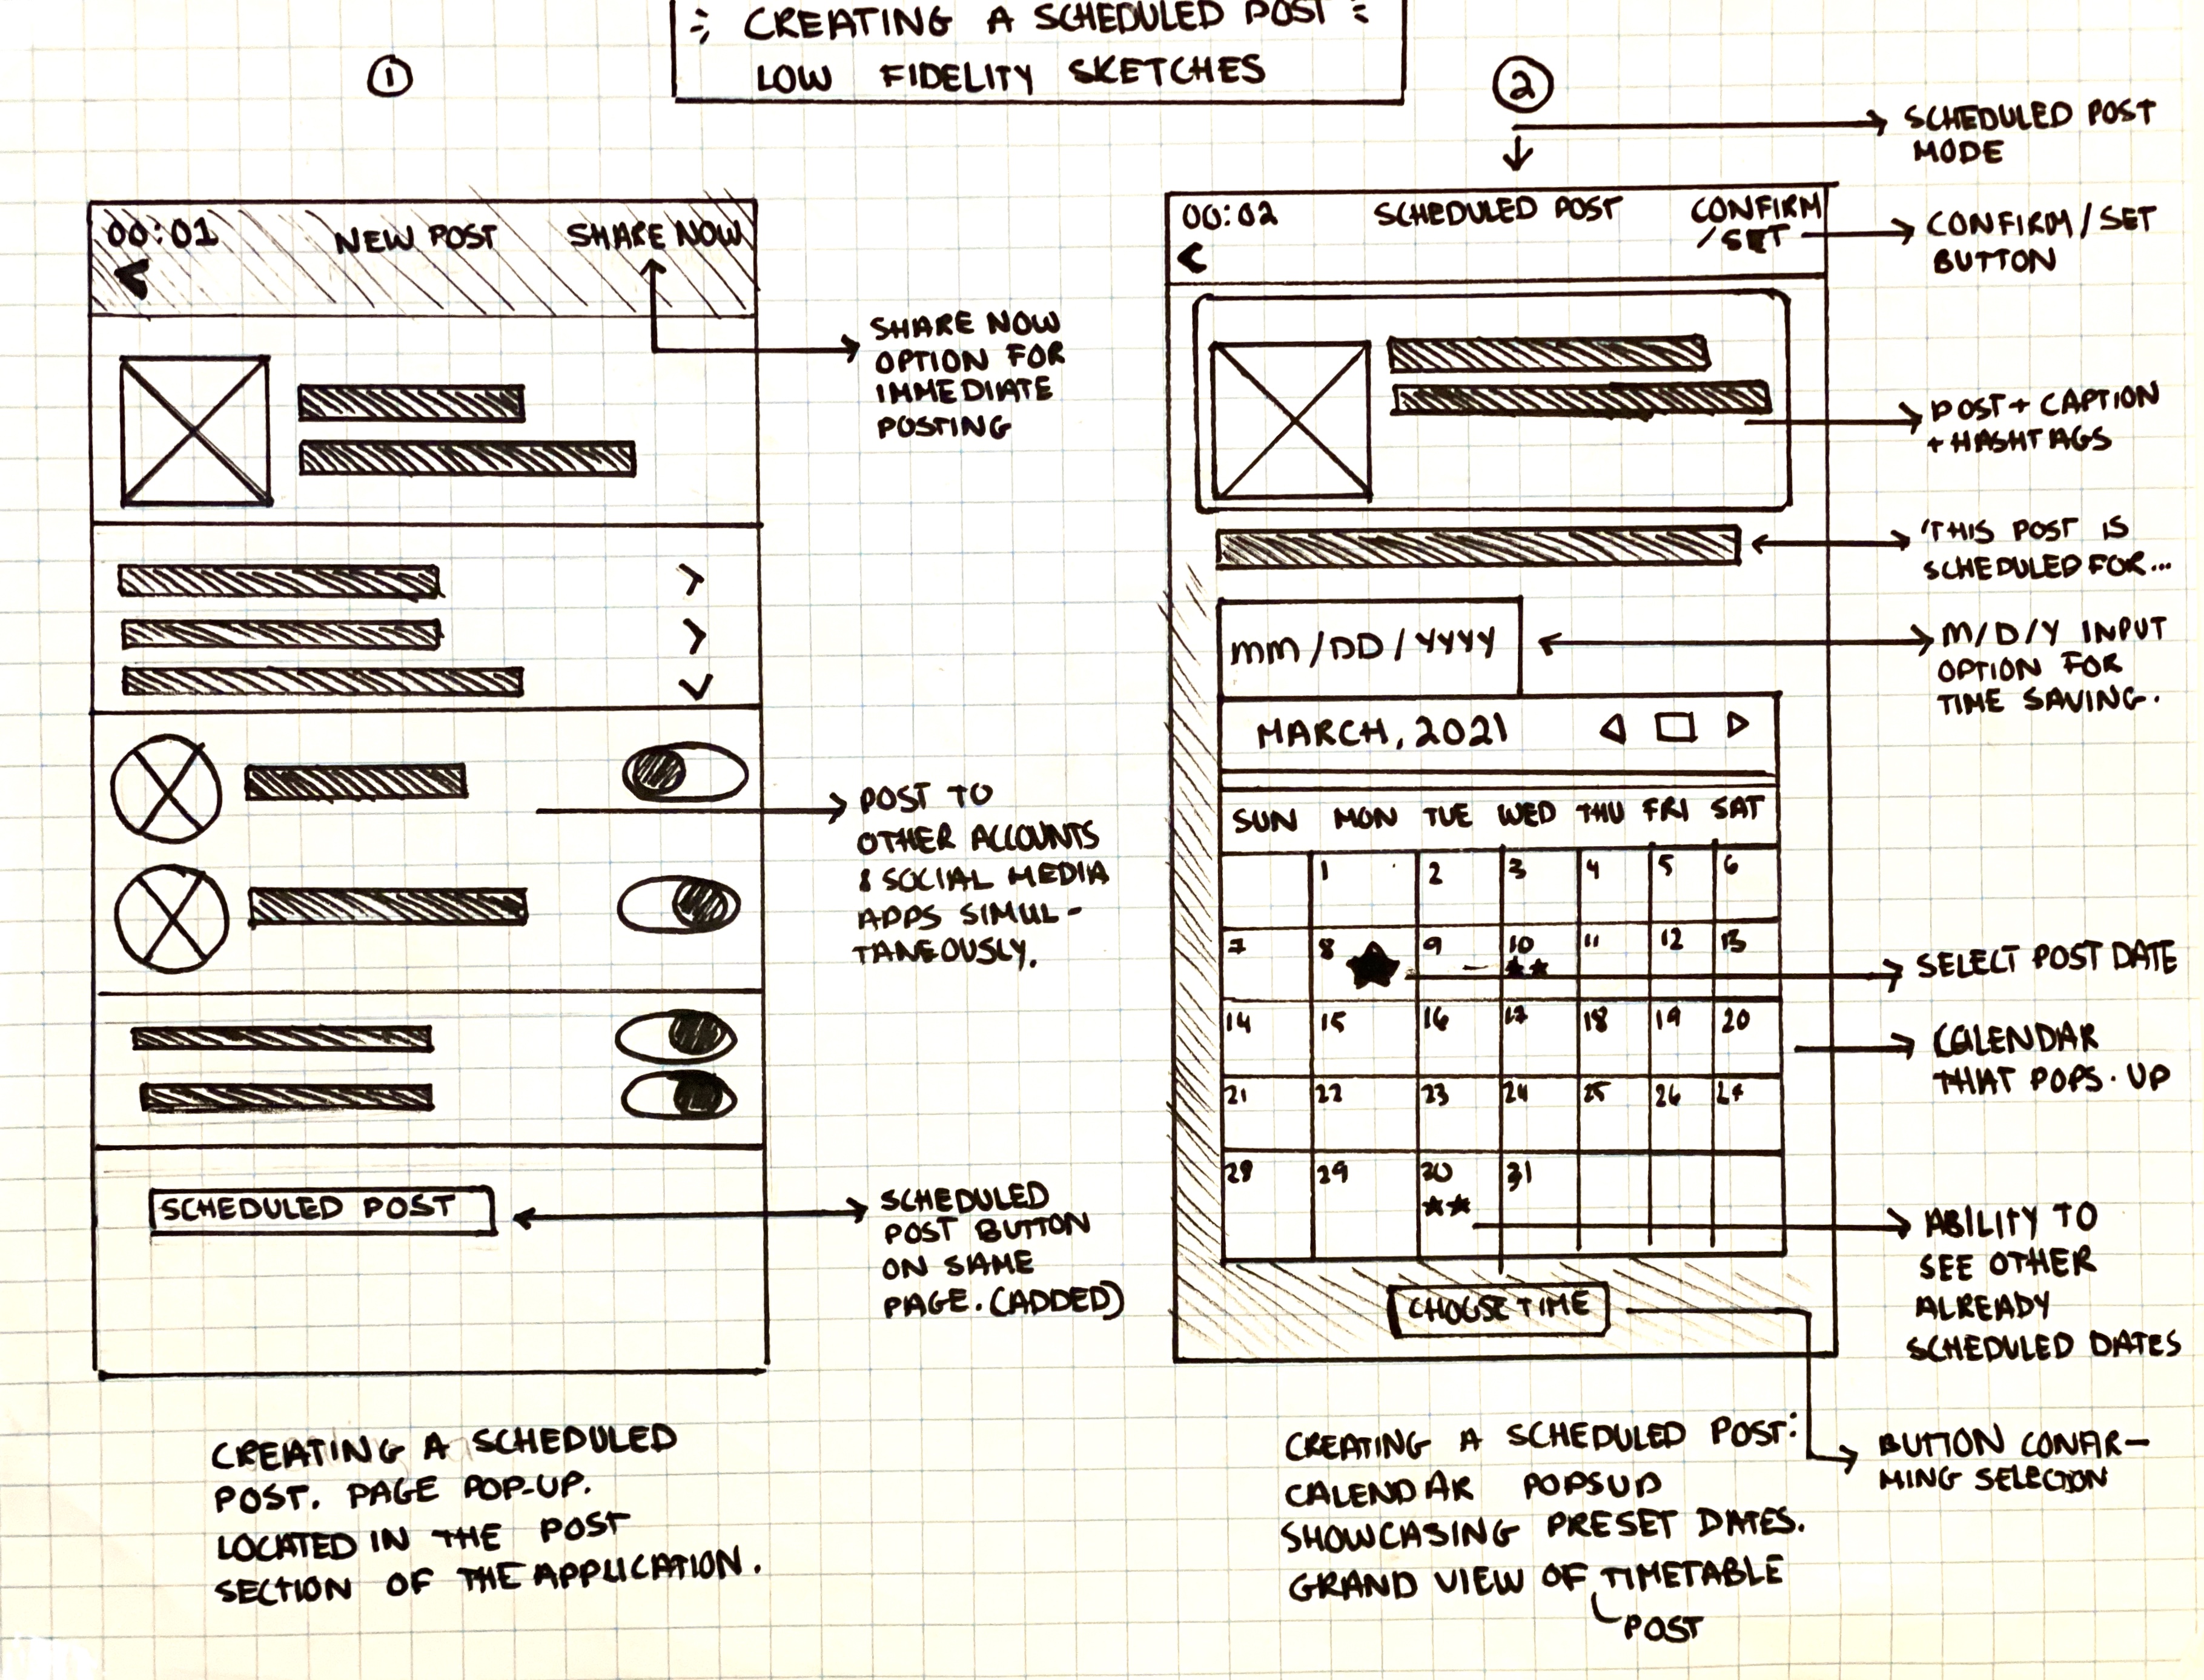 CREATING A SCHEDULED POST
LOW FIDELITY SKETCHES
1
00:01 NEW POST SHARE NOW
SHARE NOW
OPTION FOR
IMMEDIATE
POSTING
POST TO
OTHER ACCOUNTS
& SOCIAL MEDIA
APPS SIMUL-
TANEOUSLY.
SCHEDULED POST
SCHEDULED
POST BUTTON
ON SAME
PAGE. (ADDED)
CREATING A SCHEDULED
POST. PAGE POP-UP.
LOCATED IN THE POST
SECTION OF THE APPLICATION.
2
SCHEDULED POST
MODE
00:02 SCHEDULED POST CONFIRM
/SET
CONFIRM/SET
BUTTON
POST + CAPTION
+ HASHTAGS
'THIS POST IS
SCHEDULED FOR...
MM/DD/YYYY
M/D/Y INPUT
OPTION FOR
TIME SAVING.
MARCH, 2021
SUN MON TUE WED THU FRI SAT
1 2 3 4 5 6
7 8 9 10 11 12 13
SELECT POST DATE
14 15 16 17 18 19 20
CALENDAR
THAT POPS-UP
21 22 23 24 25 26 27
28 29 30 31
ABILITY TO
SEE OTHER
ALREADY
SCHEDULED DATES
CHOOSE TIME
BUTTON CONFIR-
MING SELECTION
CREATING A SCHEDULED POST:
CALENDAR POPSUP
SHOWCASING PRESET DATES.
GRAND VIEW OF TIMETABLE
POST